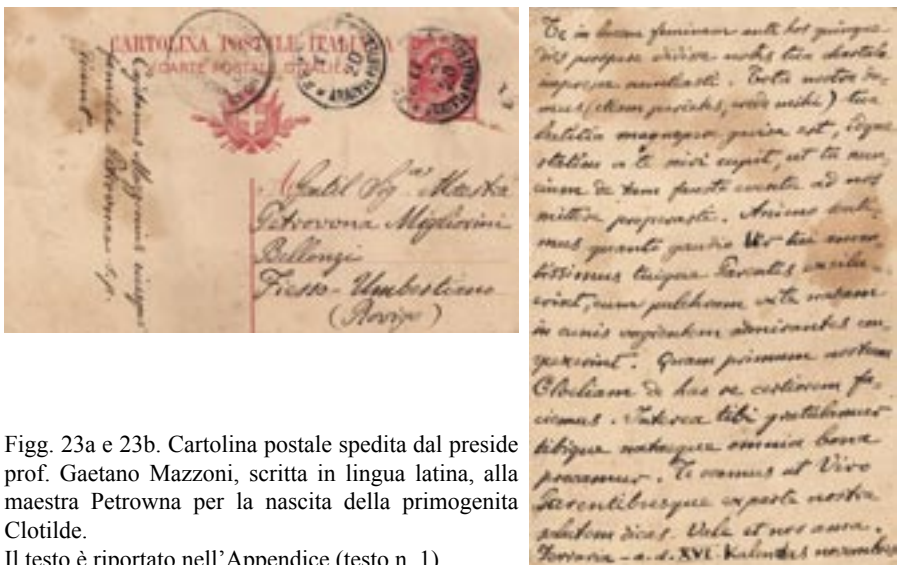 CARTOLINA POSTALE ITALIANA
(CARTE POSTALE D'ITALIE)
Cajetanus Mazzonius eiusque
familia Petrownae s.p.
dicunt.
Gentil Sig.ra Maestra
Petrovona Migliorini
Bellonzi
Fiesso-Umbertiano
(Rovigo)
Te in lucem feminam ante hos quinque
dies prospere edidisse nobis tua chartula
impressa nuntiasti. Tota nostra do-
mus (etiam parietes, crede mihi) tua
laetitia magnopere gavisa est, idque
statim a te sciri cupit, ut tu nun-
cium de tam fausto eventu ad nos
mittere properasti. Animo senti-
mus quanto gaudio Vir tui aman-
tissimus tuique Parentes exsilu-
erint, cum pulchram ex te natam
in cunis vagientem admirantes con-
spexerint. Quam primum nostram
Cloeliam de hac re certiorem fa-
ciemus. Interea tibi gratulamur
tibique nataeque omnia bona
precamur. Te oramus ut Viro
Parentibusque ex parte nostra
salutem dicas. Vale et nos ama.
Ferraria - a.d. XVI Kalendas novembres
Figg. 23a e 23b. Cartolina postale spedita dal preside
prof. Gaetano Mazzoni, scritta in lingua latina, alla
maestra Petrowna per la nascita della primogenita
Clotilde.
Il testo è riportato nell'Appendice (testo n. 1)